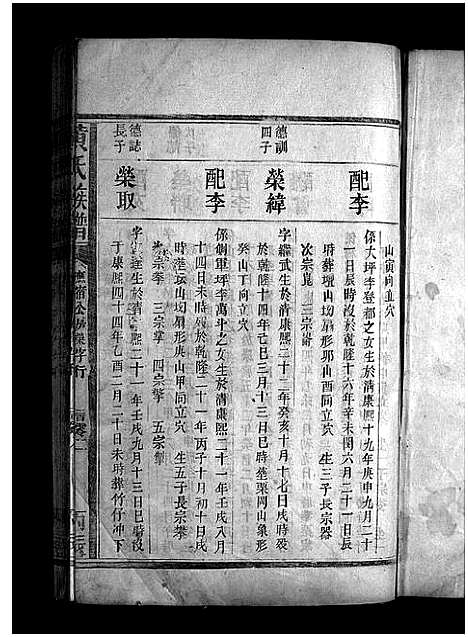 山寅向立穴
配李
係大坪李登都之女生於清康熙十九年庚申九月二十
一日辰時沒於乾隆十六年辛未閏六月二十一日辰
時葬壇山坳扇形邪山酉向立穴 生三子長宗器
次宗嵬 三宗
德訓
四子
榮緯
字繼武生於清康熙二十二年癸亥十月十七日戌時歿
於乾隆十四年己巳三月十三日巳時塟栗岡山象形
癸山丁向立穴
配李
係側軍坪李萬斗之女生於清康熙二十一年壬戌八月
十四日未時殁於乾隆二十一年丙子十月初十日戌
時塟坛山坳扇形庚山甲向立穴 生五子長宗攀
次宗李 三宗掌 四宗擎 五宗
德誌
長子
榮取
字 生於清康熙二十一年壬戌九月十三日巳時沒
于康熙四十四年乙酉二月二十日未時葬竹仔冲下
黃氏族譜